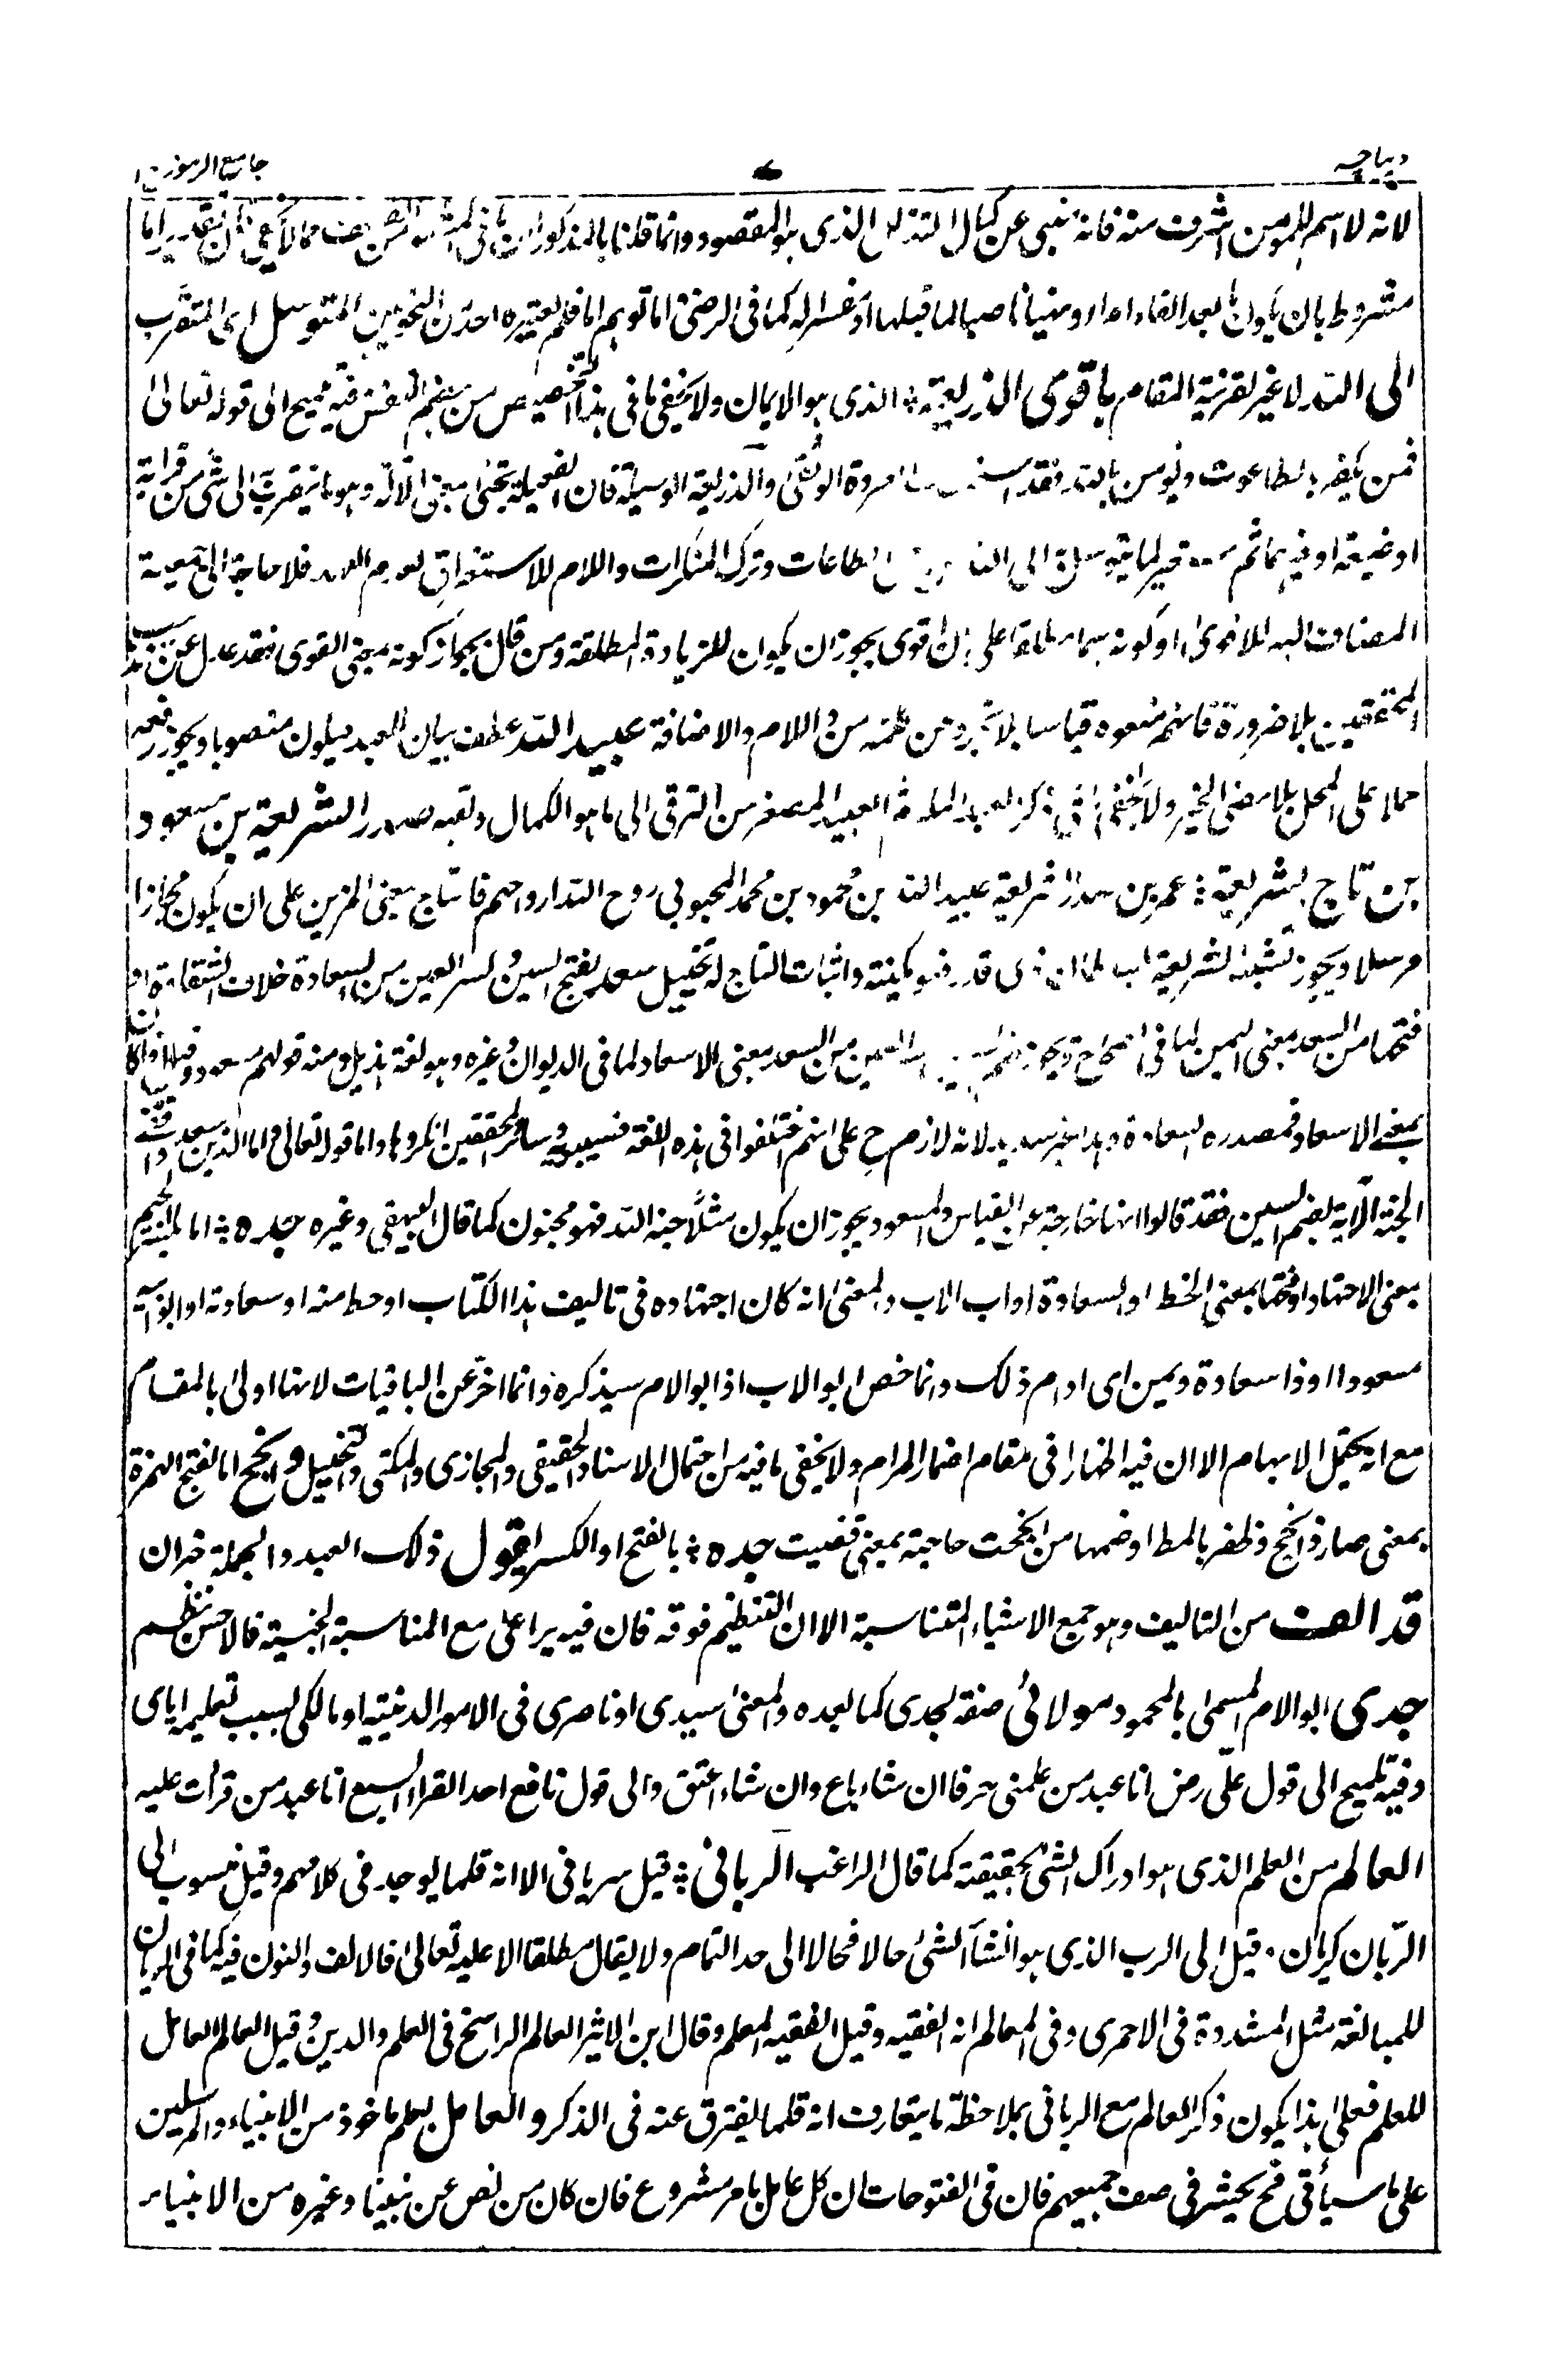 ديباجه
جامع الرموز ج ١
لانه لا اسم للمومن اشرف منه فانه ينبى عن كمال التذلل الذى هو المقصود وانما قلنا بالمذكور لان ما فى
مشروط بان يكون ما بعد الفاء امرا ونهيا ناصبا لما قبلها او مفسرا له كما فى الرضى اما توهم اما فلم يعتبره احد من النحويين المتوسل اى المتقرب
الى الله لا غير لقرينة المقام باقوى الذريعة الذى هو الايمان ولا يخفى ما فى هذا التخصيص من هضم النفس فيه تلميح الى قوله تعالى
فمن يكفر بالطاغوت ويومن بالله فقد العروة الوثقى والذريعة الوسيلة فان الفعيلة يجئ بمعنى الآلة وهو ما يتقرب الى شئ من قرابة
او ضيعة او غيرهما ثم لما يتوسل الى الله الطاعات وترك المنكرات واللام للاستغراق لعدم العهد فلا حاجة الى
المضاف اليه على ان اقوى يجوز ان يكون للزيادة المطلقة ومن قال بجواز كونه بمعنى القوى فقد عدل عن مذهب
المحققين بلا ضرورة فانهم منعوه قياسا بلا تجرد عن كلمة من واللام والاضافة عبيد الله عطف بيان للعبد فيكون منصوبا ويجوز رفعه
حملا على المحل بلا مضى الخبر ولا يخفى ما فى ذكر العبد المصغر من الترقى الى ما هو الكمال ولقبه صدر الشريعة بن مسعود
بن تاج الشريعة عمر بن صدر الشريعة عبيد الله بن محمود بن محمد المحبوبى روح الله ارواحهم فالتاج بمعنى المزين على ان يكون مجازا
مرسلا ويجوز تشبيه الشريعة بسلطان ذى قدر فهو مكنية واثبات التاج له تخييل سعد بفتح السين وكسر العين من السعادة خلاف الشقاوة او
فتحها من السعد بمعنى اليمن كما فى الصحاح ويجوز ضم العين من السعد بمعنى الاسعاد كما فى الديوان وغيره وهو لغة هذيل ومنه قولهم مسعود
بمعنى الاسعاد فمصدره السعادة وهذا غير سديد لانه لازم ح على انهم اختلفوا فى هذه اللغة فسيبويه وسائر المحققين انكروها واما قوله تعالى واما الذين سعدوا ففى
الجنة الآية بضم السين فقد قالوا انها خارجة عن القياس والمسعود يجوز ان يكون مثل اجنه الله فهو مجنون كما قال البيهقى وغيره جده اما بكسر الجيم
بمعنى الاجتهاد او فتحها بمعنى الحظ او السعادة او اب الاب والمعنى انه كان اجتهاده فى تاليف هذا الكتاب او حظ منه او سعادته او ابو ابيه
مسعودا او ذا سعادة ويمن اى ادام ذلك وانما خص ابو الاب اذ ابو الام سيذكره وانما اخر عن الباقيات لانها اولى بالمقام
مع انه يحتمل الابهام الا ان فيه اظهارا فى مقام اضمار المرام ولا يخفى ما فيه من احتمال الاسناد الحقيقى والمجازى والمكنى والتخييل وانجح اما بفتح الهمزة
بمعنى صار ذا نجح وظفر بالمط او ضمها من انجحت حاجته بمعنى قضيت جده بالفتح او الكسر يقول ذلك العبد والجملة خبر ان
قد الف من التاليف وهو جمع الاشياء المتناسبة الا ان التنظيم فوقه فان فيه يراعى مع المناسبة الجنسية فالاحسن نظم
جدى ابو الام المسمى بالمحمود مولائى صفة لجدى كما بعده والمعنى سيدى او ناصرى فى الامور الدينية او مالكى بسبب تعليمه اياى
وفيه تلميح الى قول على رض انا عبد من علمنى حرفا ان شاء باع وان شاء اعتق والى قول نافع احد القراء السبع انا عبد من قرات عليه
العالم من العلم الذى هو ادراك الشئ بحقيقته كما قال الراغب الربانى قيل سريانى الا انه قلما يوجد فى كلامهم وقيل منسوب الى
الربان كريان وقيل الى الرب الذى هو انشاء الشئ حالا فحالا الى حد التمام ولا يقال مطلقا الا عليه تعالى فالالف والنون فيه كما فى
للمبالغة مثل المشددة فى الاحمرى وفى المعالم انه الفقيه وقيل الفقيه المعلم وقال ابن الاثير العالم الراسخ فى العلم والدين وقيل العالم العامل
للعلم فعلى هذا يكون ذكر العالم مع الربانى بملاحظة ما يتعارف انه قلما يفترق عنه فى الذكر والعامل بعلم ماخوذ من الانبياء والمرسلين
على ما سيأتى فح يحشر فى صف جميعهم فان فى الفتوحات ان كل عامل بامر مشروع فان كان من نص عن نبينا وغيره من الانبياء